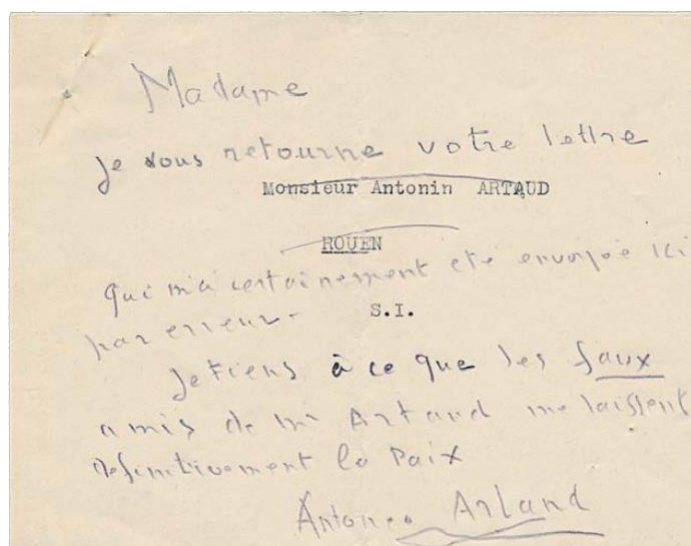 Madame
je vous retourne votre lettre
Monsieur Antonin ARTAUD
ROUEN
qui m'a certainement eté envoyée ici
par erreur.
S.I.
Je tiens à ce que les faux
amis de mr Artaud me laissent
definitivement la Paix
Antoneo Arland